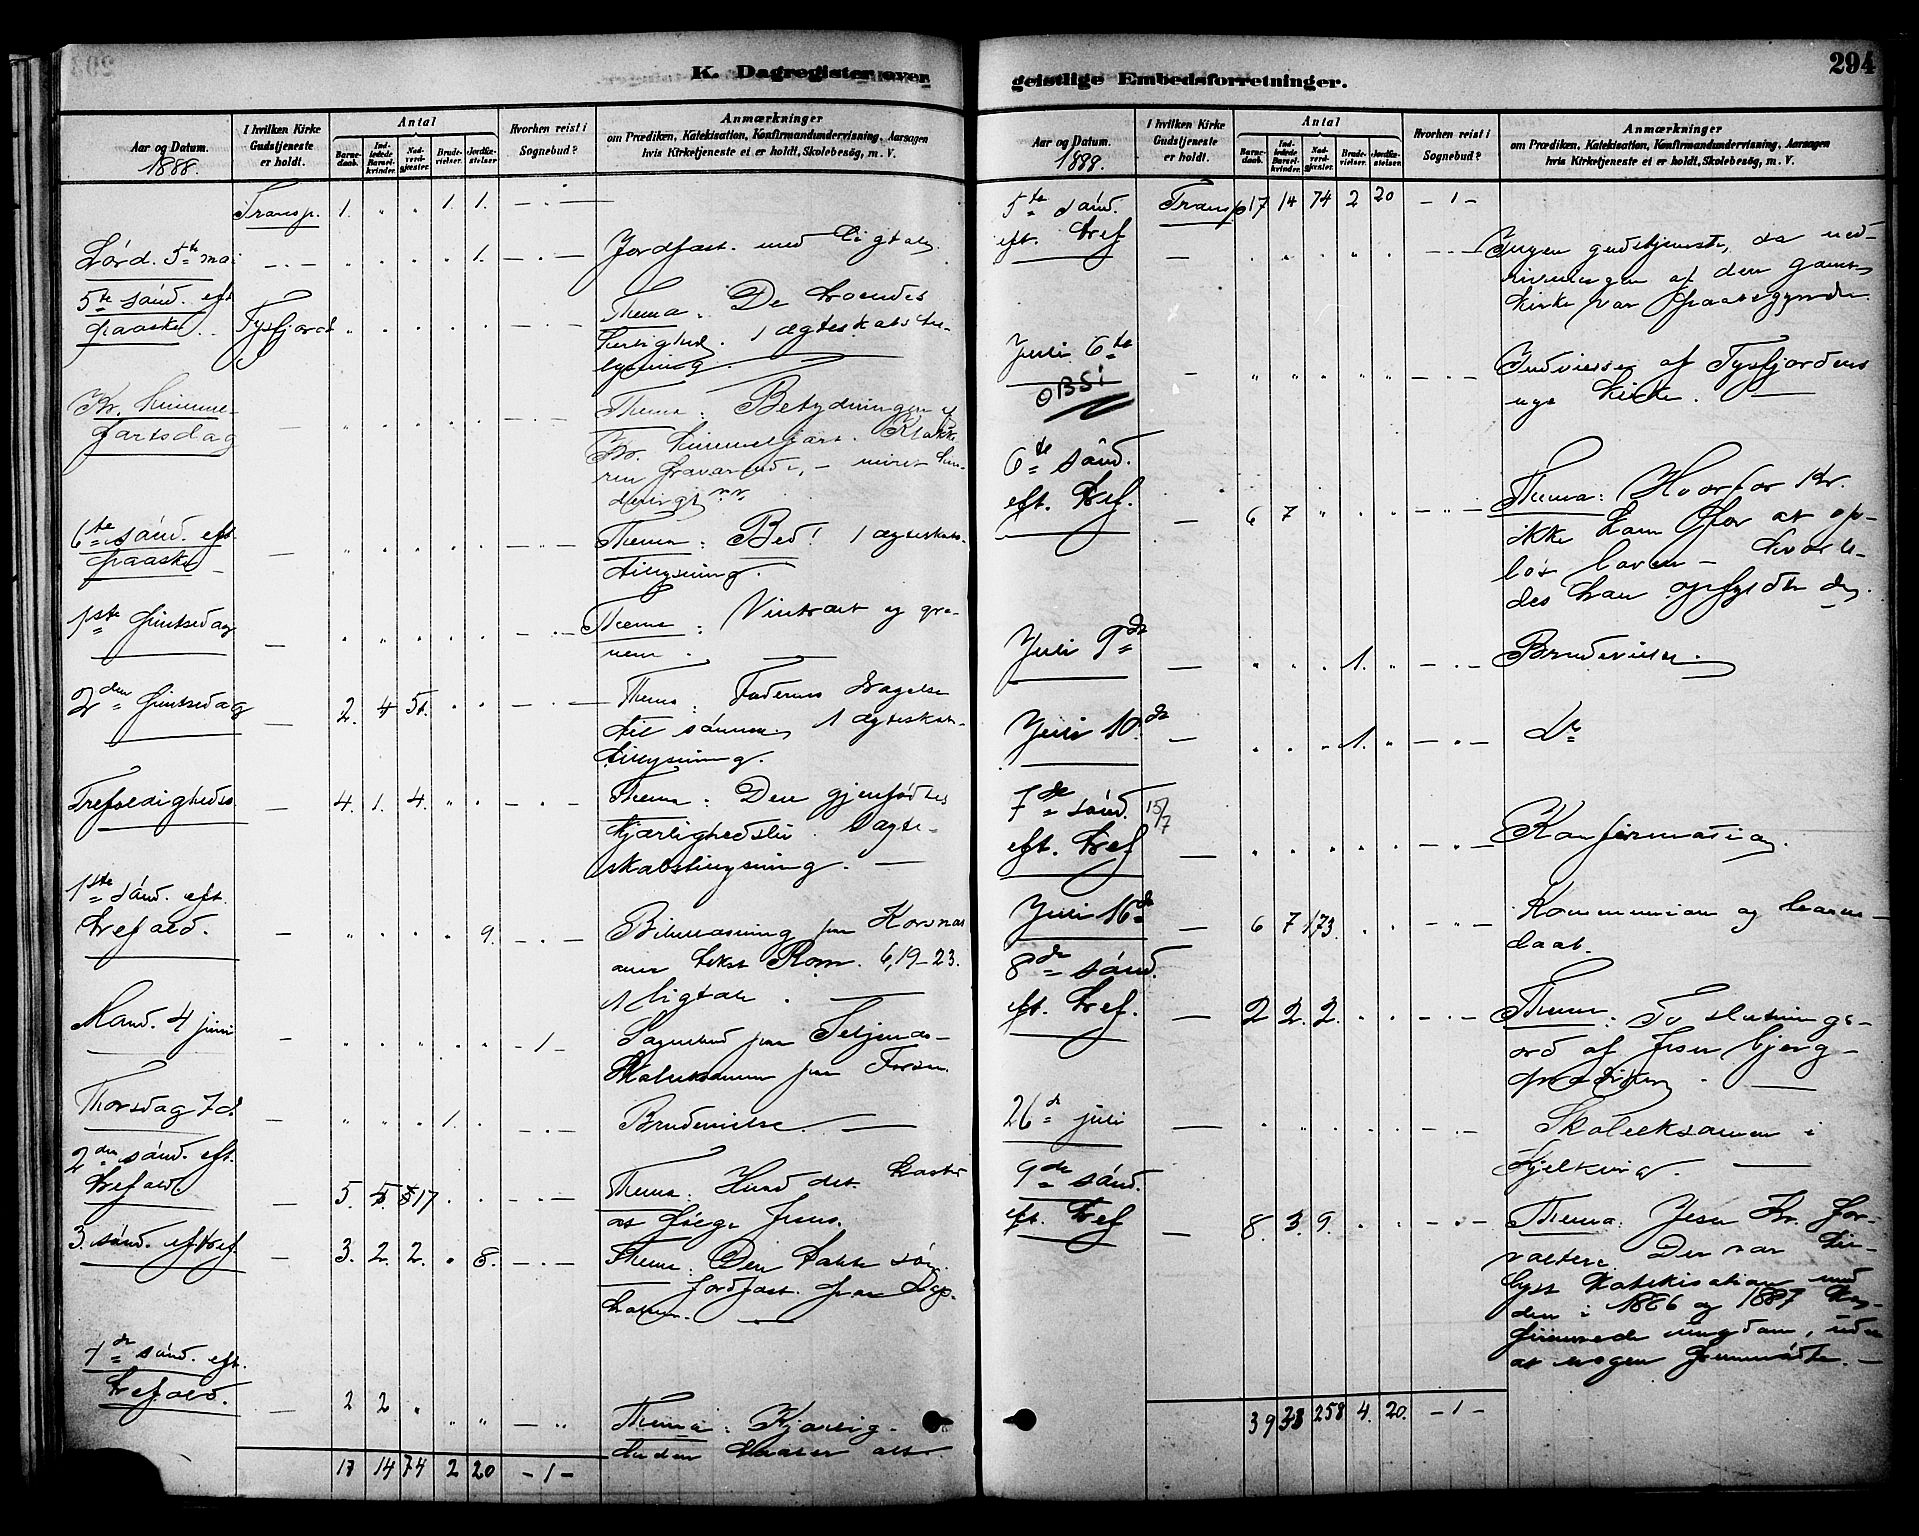 K. Dagregister over
Aar og Datum.
1888.
I hvilken Kirke Gudstjeneste er holdt.
Antal
Barne-daab.
Ind-ledede Barsel-kvinder.
Nad-verd-gjæster.
Brude-vielser.
Jordfæ-stelser
Hvorhen reist i Sognebud?
Anmærkninger
om Prædiken, Katekisation, Konfirmandundervisning, Aarsagen
hvis Kirketjeneste ei er holdt, Skolebesög, m. V.
Transp. 1. " " 1. 1. - . -
Lørd. 5te mai - . - " " " " 1. - . - Jordfæst. med ligtale.
5te sønd. eft.
paaske Tysfjord Thema: De troendes
herlighed. 1 ægteskabs
lysning.
Kr. himmel-
fartsdag Thema: Betydningen af
Kr. himmelfart.
6te sønd. eft.
paaske Thema: Bed! 1 ægteskabs-
tinlysning.
1ste pintsedag Thema: Vintræet og gre-
nene.
2den pintsedag 2. 4 51. Thema: Faderens dragelse
til sønnen. 1 ægteskabs-
tinlysning.
Trefoldigheds. 4. 1. 4. Thema: Den gjenfødtes
kjærlighedsliv. 1 ægte-
skabstinlysning.
1ste sønd. eft.
trefold. 9. Bibellæsning paa Korsnæs
over tekst Rom. 6, 19-23.
1 ligtale.
Mand. 4 juni - 1 - Sognebud paa
Skoleeksamen paa
Thorsdag 7d. 1. Brudevielse.
2den sønd. eft.
trefold. 5. 5. 17 Thema: Hvad det koster
at følge Jesus.
3. sønd. ef tref. 3. 2. 2. " 8. Thema: Den
Jordfæst. paa
4de sønd. eft.
trefold. 2 2 " " " Thema: Kjærlig-
heden
17 14 74 2 20 - 1 -
geistlige Embedsforretninger.
294
Aar og Datum.
1888.
I hvilken Kirke Gudstjeneste er holdt.
Antal
Barne-daab.
Ind-ledede Barsel-kvinder.
Nad-verd-gjæster.
Brude-vielser.
Jordfæ-stelser.
Hvorhen reist i Sognebud?
Anmærkninger
om Prædiken, Katekisation, Konfirmandundervisning, Aarsagen
hvis Kirketjeneste ei er holdt, Skolebesög, m. V.
5te sønd.
eft. tref Transp 17 14 74 2 20 - 1 -
Ingen gudstjeneste, da ned-
rivningen af den gamle
kirke var paabegyndt.
Juli 6te
OBS! Indvielse af Tysfjordens
nye kirke.
6te sønd.
eft. tref. 6 7 Thema: Hvorfor Kr.
ikke kom for at op-
løse loven - hvorle-
des han opfyldte den.
Juli 9de 1. Brudevielse.
Juli 10de 1. Do
7de sønd. 15/7
eft. tref Konfirmation.
Juli 16de 6 7 173. Kommunion og barne-
daab.
8de sønd.
eft. tref. 2 2. 2. Thema: To slutnings-
ord af Jesu bjerg-
prædiken.
26de juli Skoleeksamen i
Kjelkvig.
9de sønd.
eft. tref 8. 3. 9. Thema: Jesu Kr. for-
valtere. Der var til-
lyst katekisation med
den i 1886 og 1887 kon-
firmerede ungdom, uden
at nogen fremmødte.
39 38 258 4. 20. - 1 -